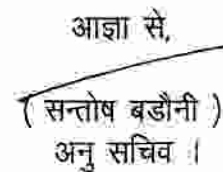 आज्ञा से,
( सन्तोष बडौनी )
अनु सचिव ।